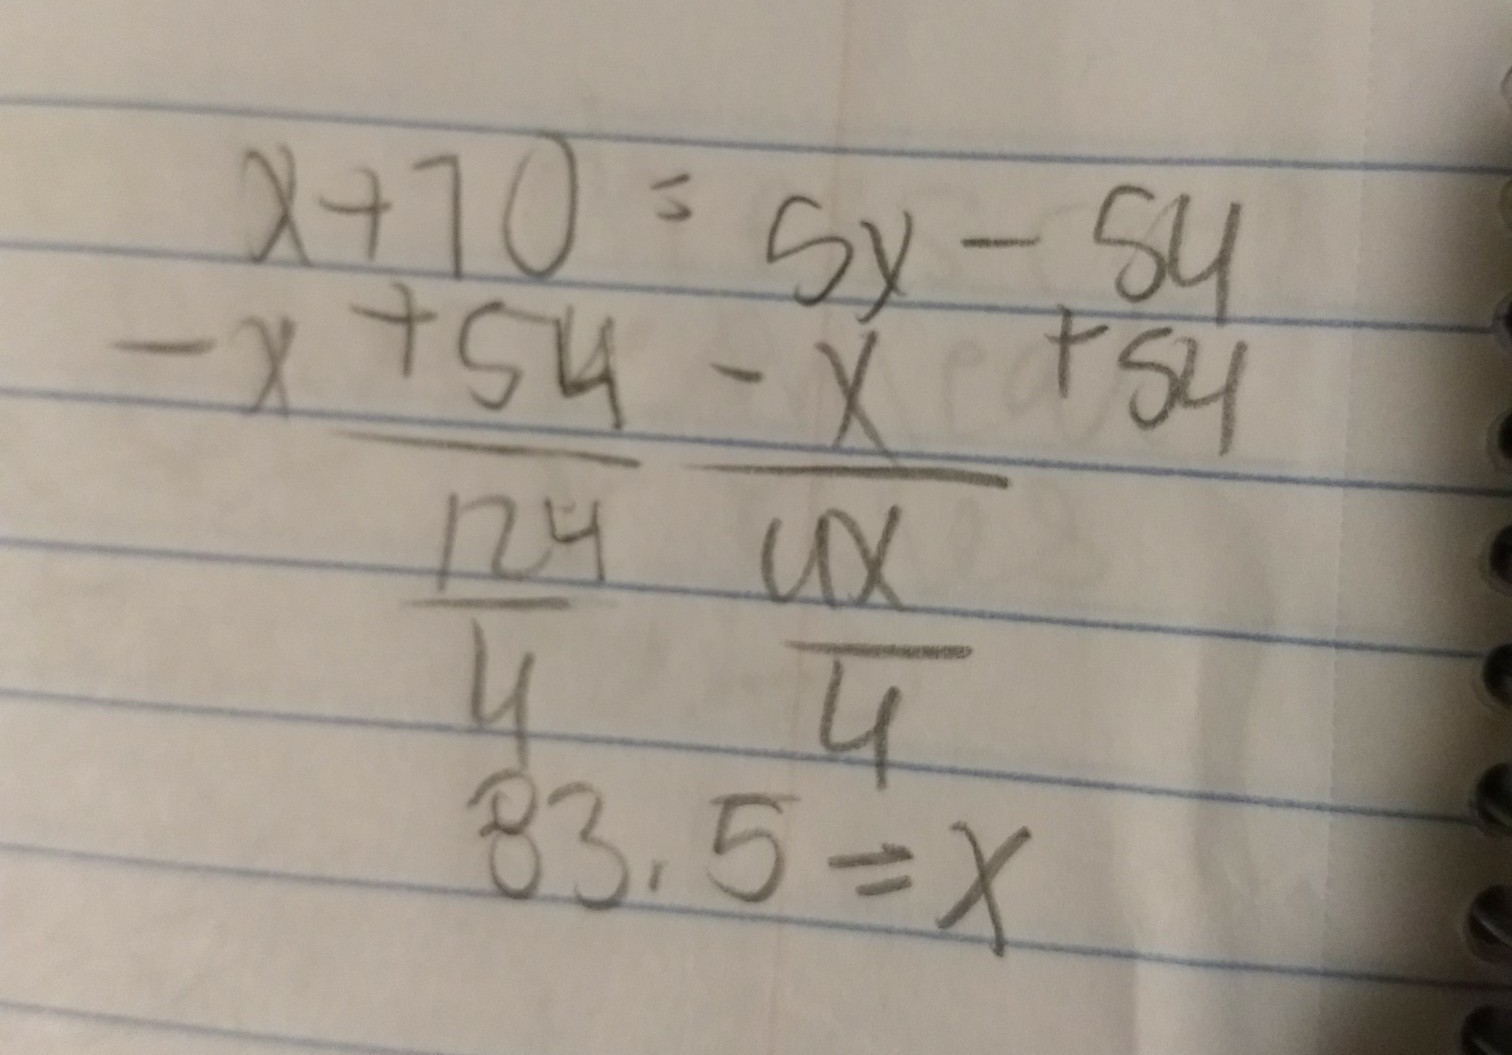 x+70 = 5x - 54
-x +54 - x +54
124 4x
4 4
83.5 = x